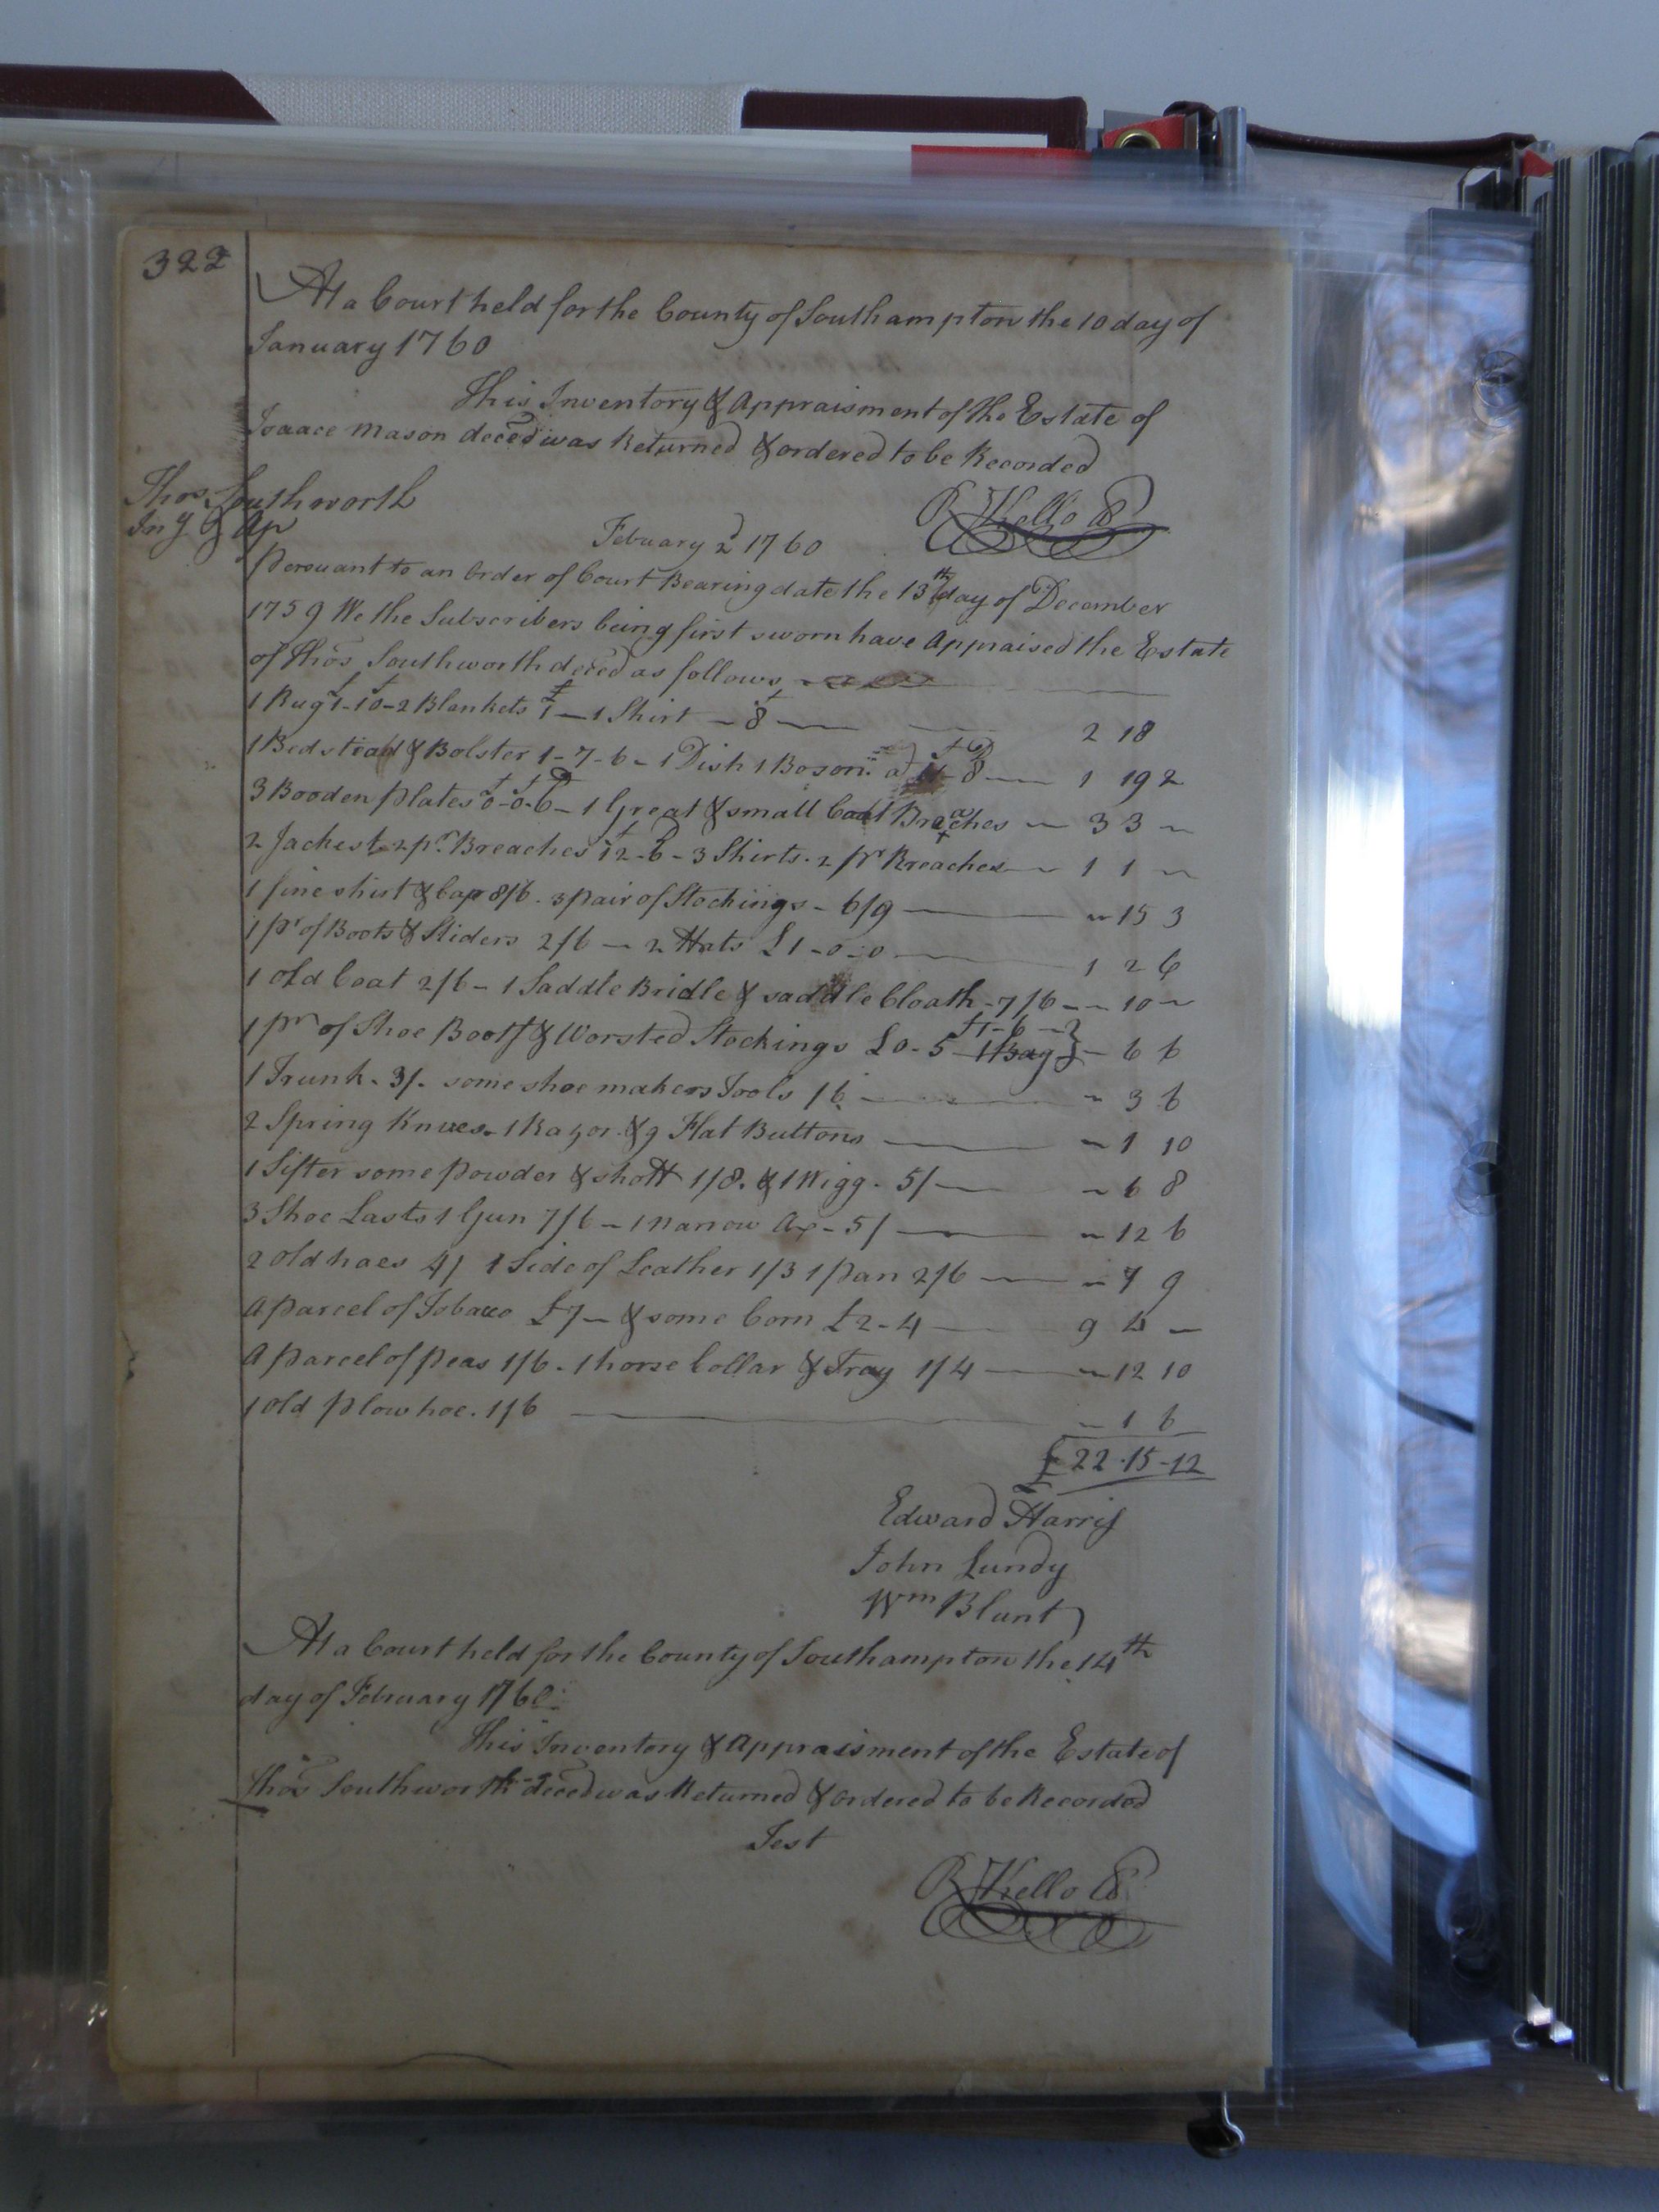 322
At a Court held for the County of Southampton the 10 day of
January 1760
This Inventory & Appraisment of the Estate of
Isaace Mason deced was Returned & ordered to be Recorded
R Kello Cl
Thos Southworth
Inv & Ap
Febuary 2d 1760
Persuant to an Order of Court Bearing date the 13th day of December
1759 We the Subscribers being first sworn have Appraised the Estate
of Thos Southworth deced as follows
1 Rug 1-10-2 Blankets 1 — 1 Shirt - 8 — 2 18
1 Bedstead & Bolster 1-7-6 - 1 Dish 1 Boson at 8 — 1 19 2
3 Booden plates 0-0-6 - 1 Great & small Coat Breaches — 3 3 ~
2 Jackest. 2 pr. Breaches 12-6 - 3 Shirts. 2 pr Breaches — 1 1 ~
1 fine shirt & Cap 8/6. 3 pair of Stockings - 6/9 — ~ 15 3
1 pr of Boots & Sliders 2/6 — 2 Hats £1-0-0 — 1 2 6
1 old Coat 2/6 - 1 Saddle Bridle & saddle Cloath - 7/6 — ~ 10 ~
1 pr of Shoe Boots & Worsted Stockings £0-5 - 1 Bag 1-6 } - 6 6
1 Trunk. 3/. some shoe makers Tools 1 6 — ~ 3 6
2 Spring Knives. 1 Razor. & 9 Flat Buttons — ~ 1 10
1 Sifter some Powder & shott 1/8. & 1 Wigg. 5/ — ~ 6 8
3 Shoe Lasts 1 Gun 7/6 - 1 narrow Ax - 5/ — ~ 12 6
2 old hoes 4/ 1 Side of Leather 1/3 1 pan 2/6 — ~ 7 9
A Parcel of Tobacco £7 — & some Corn £2-4 — 9 4 —
A Parcel of Peas 1/6 - 1 horse Collar & Tray 1/4 — ~ 12 10
1 old Plow hoe. 1/6 — ~ 1 6
£22-15-12
Edward Harris
John Lundy
Wm Blunt
At a Court held for the County of Southampton the 14th
day of February 1760
This Inventory & Appraisment of the Estate of
Thos Southworth deced was Returned & ordered to be Recorded
Test
R Kello Cl